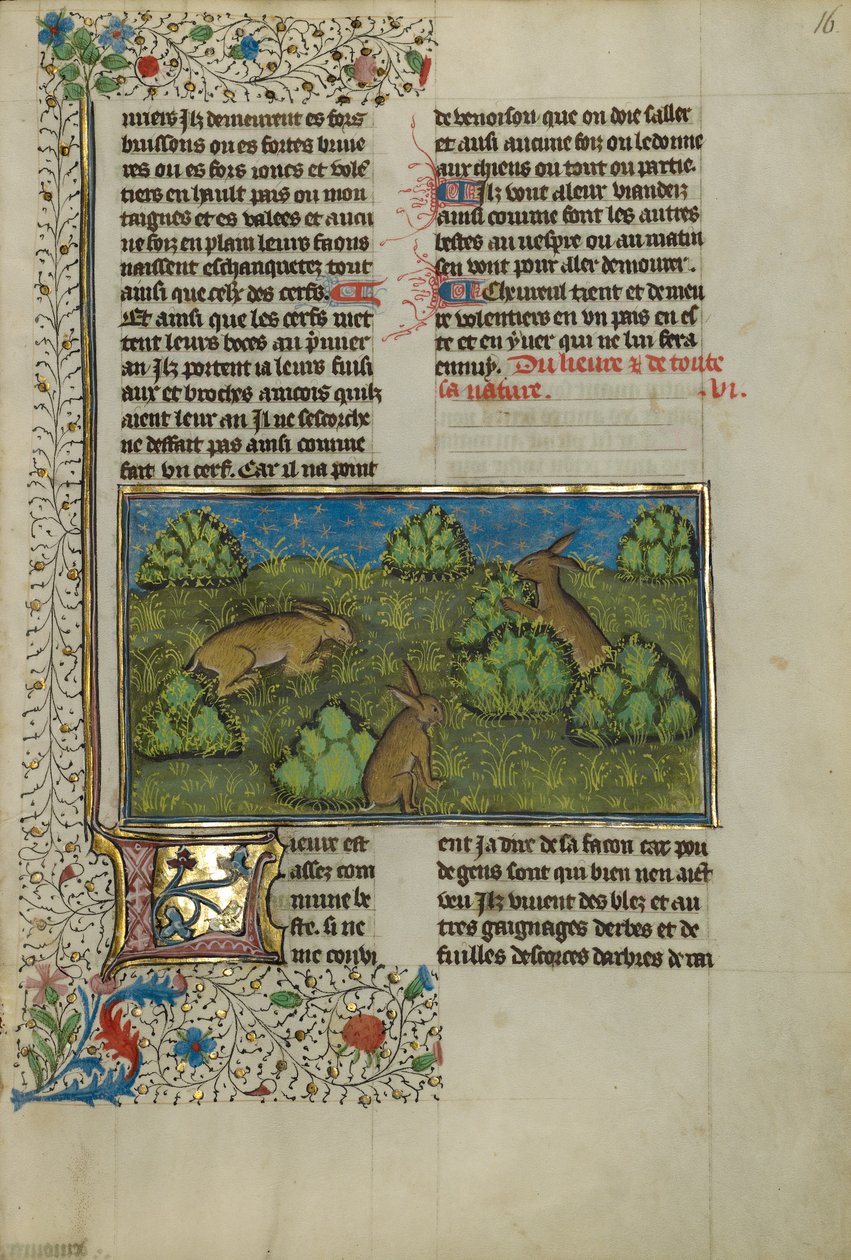 16
niers Ilz demeurent es fors
buissons ou es fortes bruie
res ou es fors ioncs et voulē
tiers en hault pais ou mon
taignes et es valees et aucu
ne foiz en plain leurs faons
naissent eschanquetez tout
ainsi que celx des cerfs.
Et ainsi que les cerfs met
tent leurs boces au p̄mier
an Ilz portent ia leurs fuisi
aux et broches aincois quilz
aient leur an Il ne sescorche
ne deffait pas ainsi comme
fait vn cerf. Car il na point
de venoison que on doie saller
et ausi aucune foiz on le donne
aux chiens ou tout ou partie.
Ilz vont a leur viandeiz
ainsi comme font les autres
bestes au vespre ou au matin
sen vont pour aler demourer.
Cheureul tient et demeu
re volentiers en vn pais en es
te et en yuer qui ne lui fera
ennuy. Du lieure et de toute
sa nature. .VI.
Lieure est
assez com
mune be
ste. si ne
me convi
ent Ja dire de sa facon car pou
de gens sont qui bien nen aiēt
veu Ilz viuent des blez et au
tres gaignages derbes et de
fuilles descorces darbres de rai